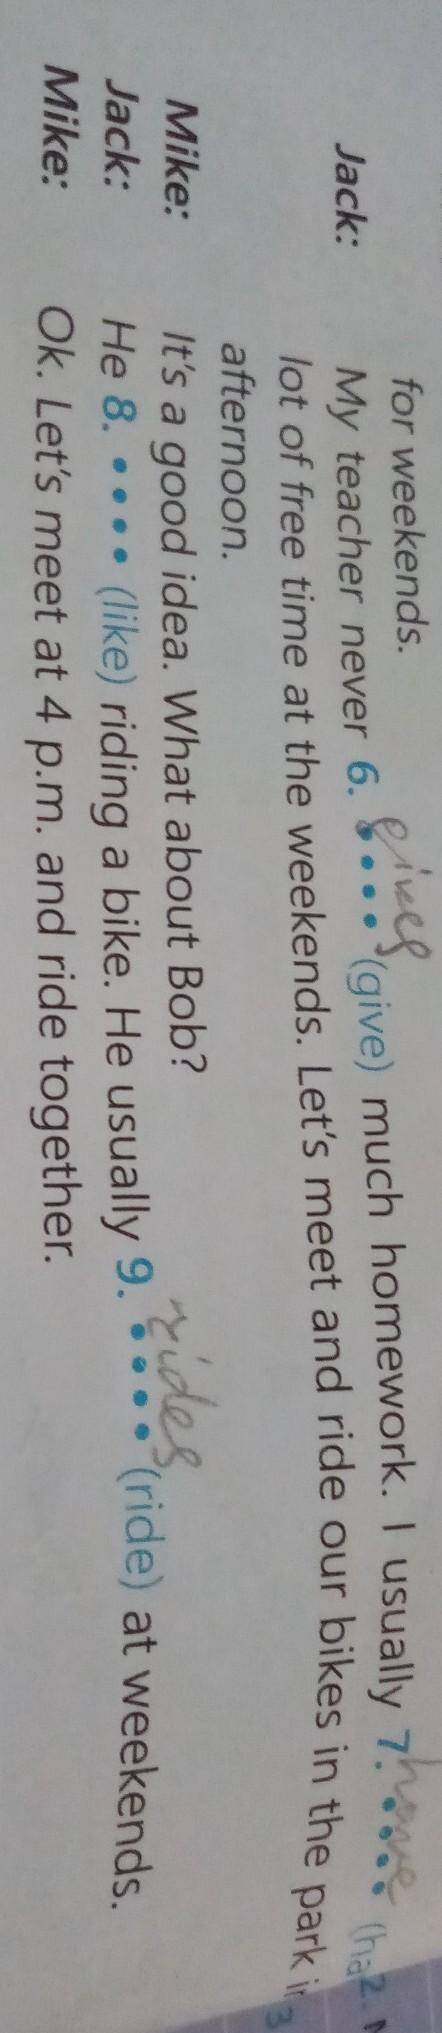 for weekends.
Jack: My teacher never 6. gives .... (give) much homework. I usually 7. have .... (ha 2.
lot of free time at the weekends. Let's meet and ride our bikes in the park 3
afternoon.
Mike: It's a good idea. What about Bob?
Jack: He 8. .... (like) riding a bike. He usually 9. rides .... (ride) at weekends.
Mike: Ok. Let's meet at 4 p.m. and ride together.